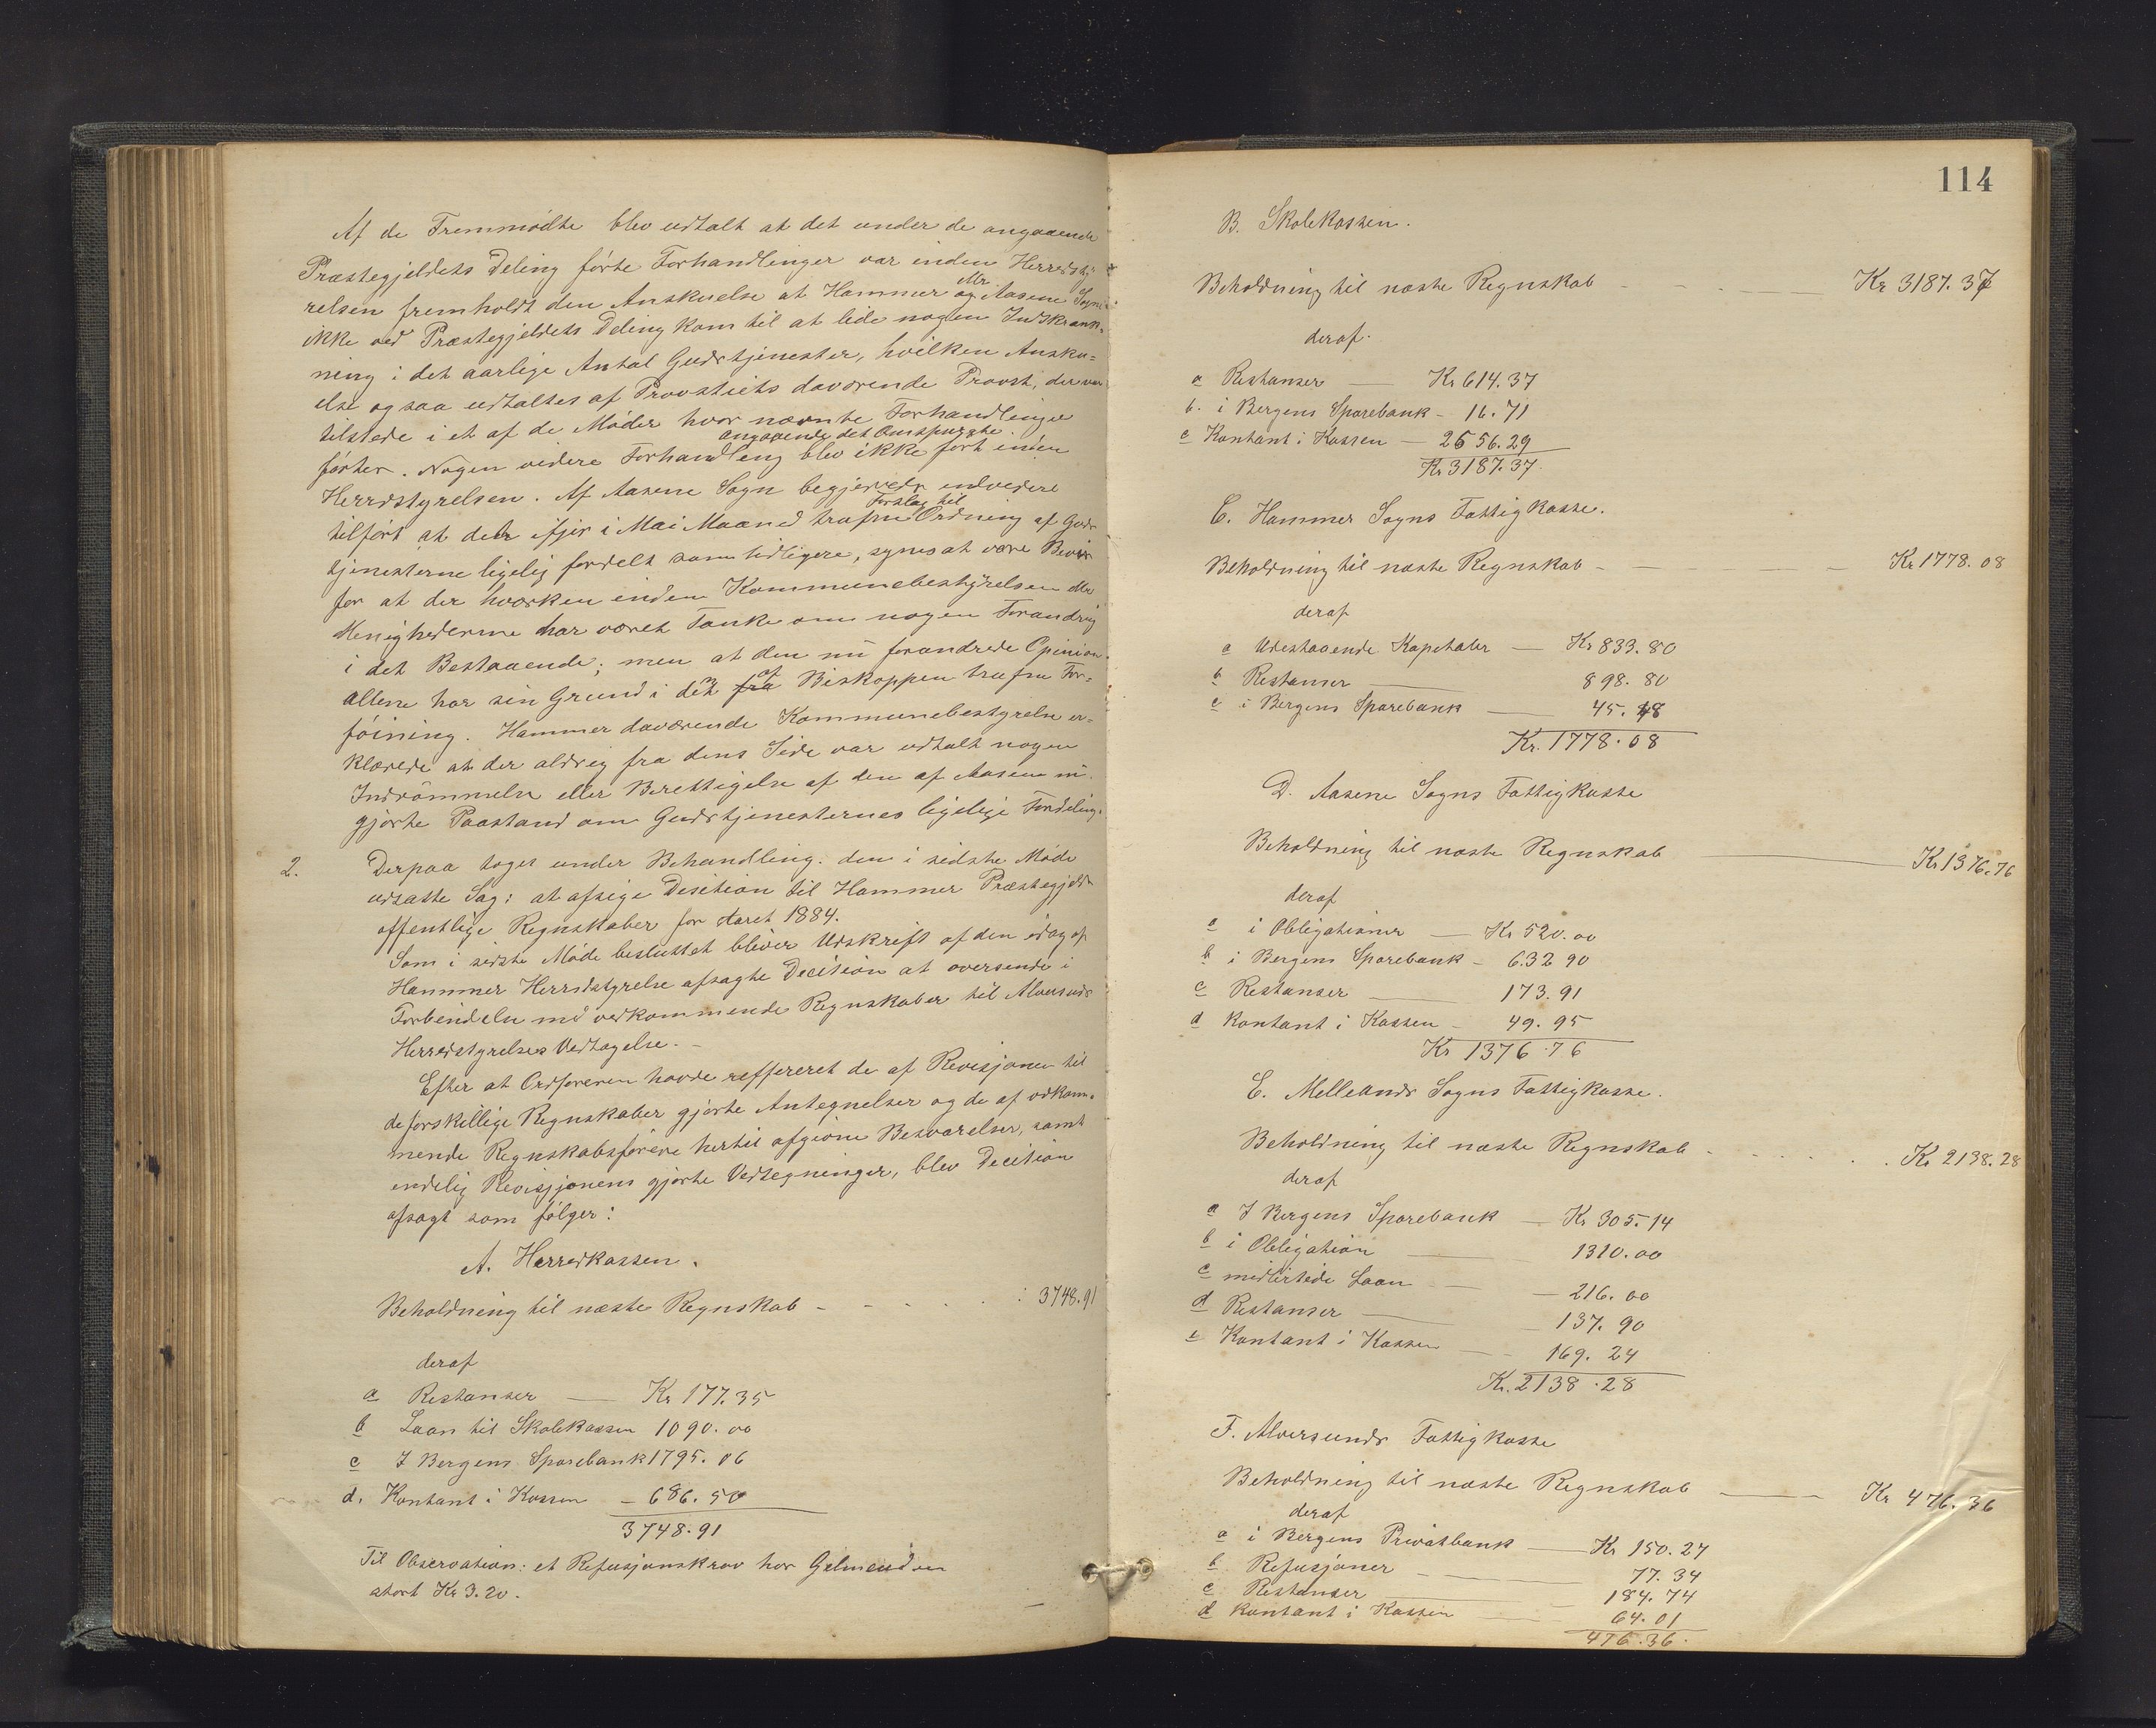 Af de Fremmødte blev udtalt at det under de angaaende
Præstegjeldets Deling førte Forhandlinger var inden Herredsty-
relsen fremholdt den Anskuelse at Hammer og Mr. Aasene Sogne
ikke ved Præstegjeldets Deling kom til at lide nogen Indskrænk-
ning i det aarlige Antal Gudstjenester, hvilken Ansku-
else ogsaa udtaltes af Provstiets daværende Provst, der var
tilstede i et af de Møder hvor nævnte Forhandlinger
førtes. Nogen videre Forhandling angaaende det Omspurgte blev ikke ført inden
Herredstyrelsen. Af Aasene Sogn begjeredes endvidere
tilført at den ifjor i Mai Maaned trafne Forslag til Ordning af Guds-
tjenesterne ligelig fordelt som tidligere, synes at være Bevis
for at der hverken inden Kommunebestyrelsen eller
Menighederne har været Tanke om nogen Forandring
i det Bestaaende; men at den nu forandrede Opinion
allene har sin Grund i den fra af Biskoppen trufne For-
føining. Hammer daværende Kommunebestyrelse er-
klærede at der aldrig fra dens Side var udtalt nogen
Indrømmelse eller Berettigelse af den af Aasene nu
gjorte Paastand om Gudstjenesternes ligelige Fordeling.
2. Derpaa toges under Behandling den i sidste Møde
udsatte Sag: at afsige Desition til Hammer Præstegjelds
offentlige Regnskaber for Aaret 1884.
Som i sidste Møde besluttet bliver Udskrift af den idag af
Hammer Herredstyrelse afsagte Decition at oversende i
Forbindelse med vedkommende Regnskaber til Alversunds
Herredstyrelses Vedtagelse. –
Efter at Ordføreren havde reffereret de af Revisjonen til
de forskillige Regnskaber gjorte Antegnelser og de af vedkom-
mende Regnskabsførere hertil afgivne Besvarelser, samt
endelig Revisjonens gjorte Vedtegninger, blev Decition
afsagt som følger:
A. Herredkassen.
Beholdning til næste Regnskab - - - - - : 3748.91
deraf
a Restanser — Kr 177.35
b Laan til Skolekassen 1090.00
c I Bergens Sparebank 1795.06
d. Kontant i Kassen – 686.50
3748.91
Til Observation: et Refusjonskrav hos
stort Kr 3.20.
114
B. Skolekassen.
Beholdning til næste Regnskab - - - — Kr 3187.37
deraf.
a Restanser — Kr 614.37
b. i Bergens Sparebank – 16.71
c Kontant i Kassen — 2556.29
Kr 3187.37.
C. Hammer Sogns Fattigkasse.
Beholdning til næste Regnskab – — — – Kr 1778.08
deraf
a Udestaaende Kapitaler — Kr 833.80
b Restanser — 898.80
c i Bergens Sparebank — 45.48
Kr. 1778.08
D. Aasene Sogns Fattigkasse
Beholdning til næste Regnskab — Kr 1376.76
deraf
a i Obligationer — Kr 520.00
b i Bergens Sparebank – 632 90
c Restanser — 173.91
d Kontant i Kassen – 49.95
Kr 1376.76
E. Mellands Sogns Fattigkasse.
Beholdning til næste Regnskab - - - - - Kr 2138.28
deraf
a I Bergens Sparebank — Kr 305.14
b i Obligation — 1310.00
c midlertide Laan — 216.00
d Restanser — 137.90
e Kontant i Kassen — 169.24
Kr. 2138.28
F. Alversunds Fattigkasse
Beholdning til næste Regnskab — Kr 476.36
deraf
a i Bergens Privatbank — Kr 150.27
b Refusjoner — 77.34
c Restanser — 184.74
d Kontant i Kassen — 64.01
476.36.